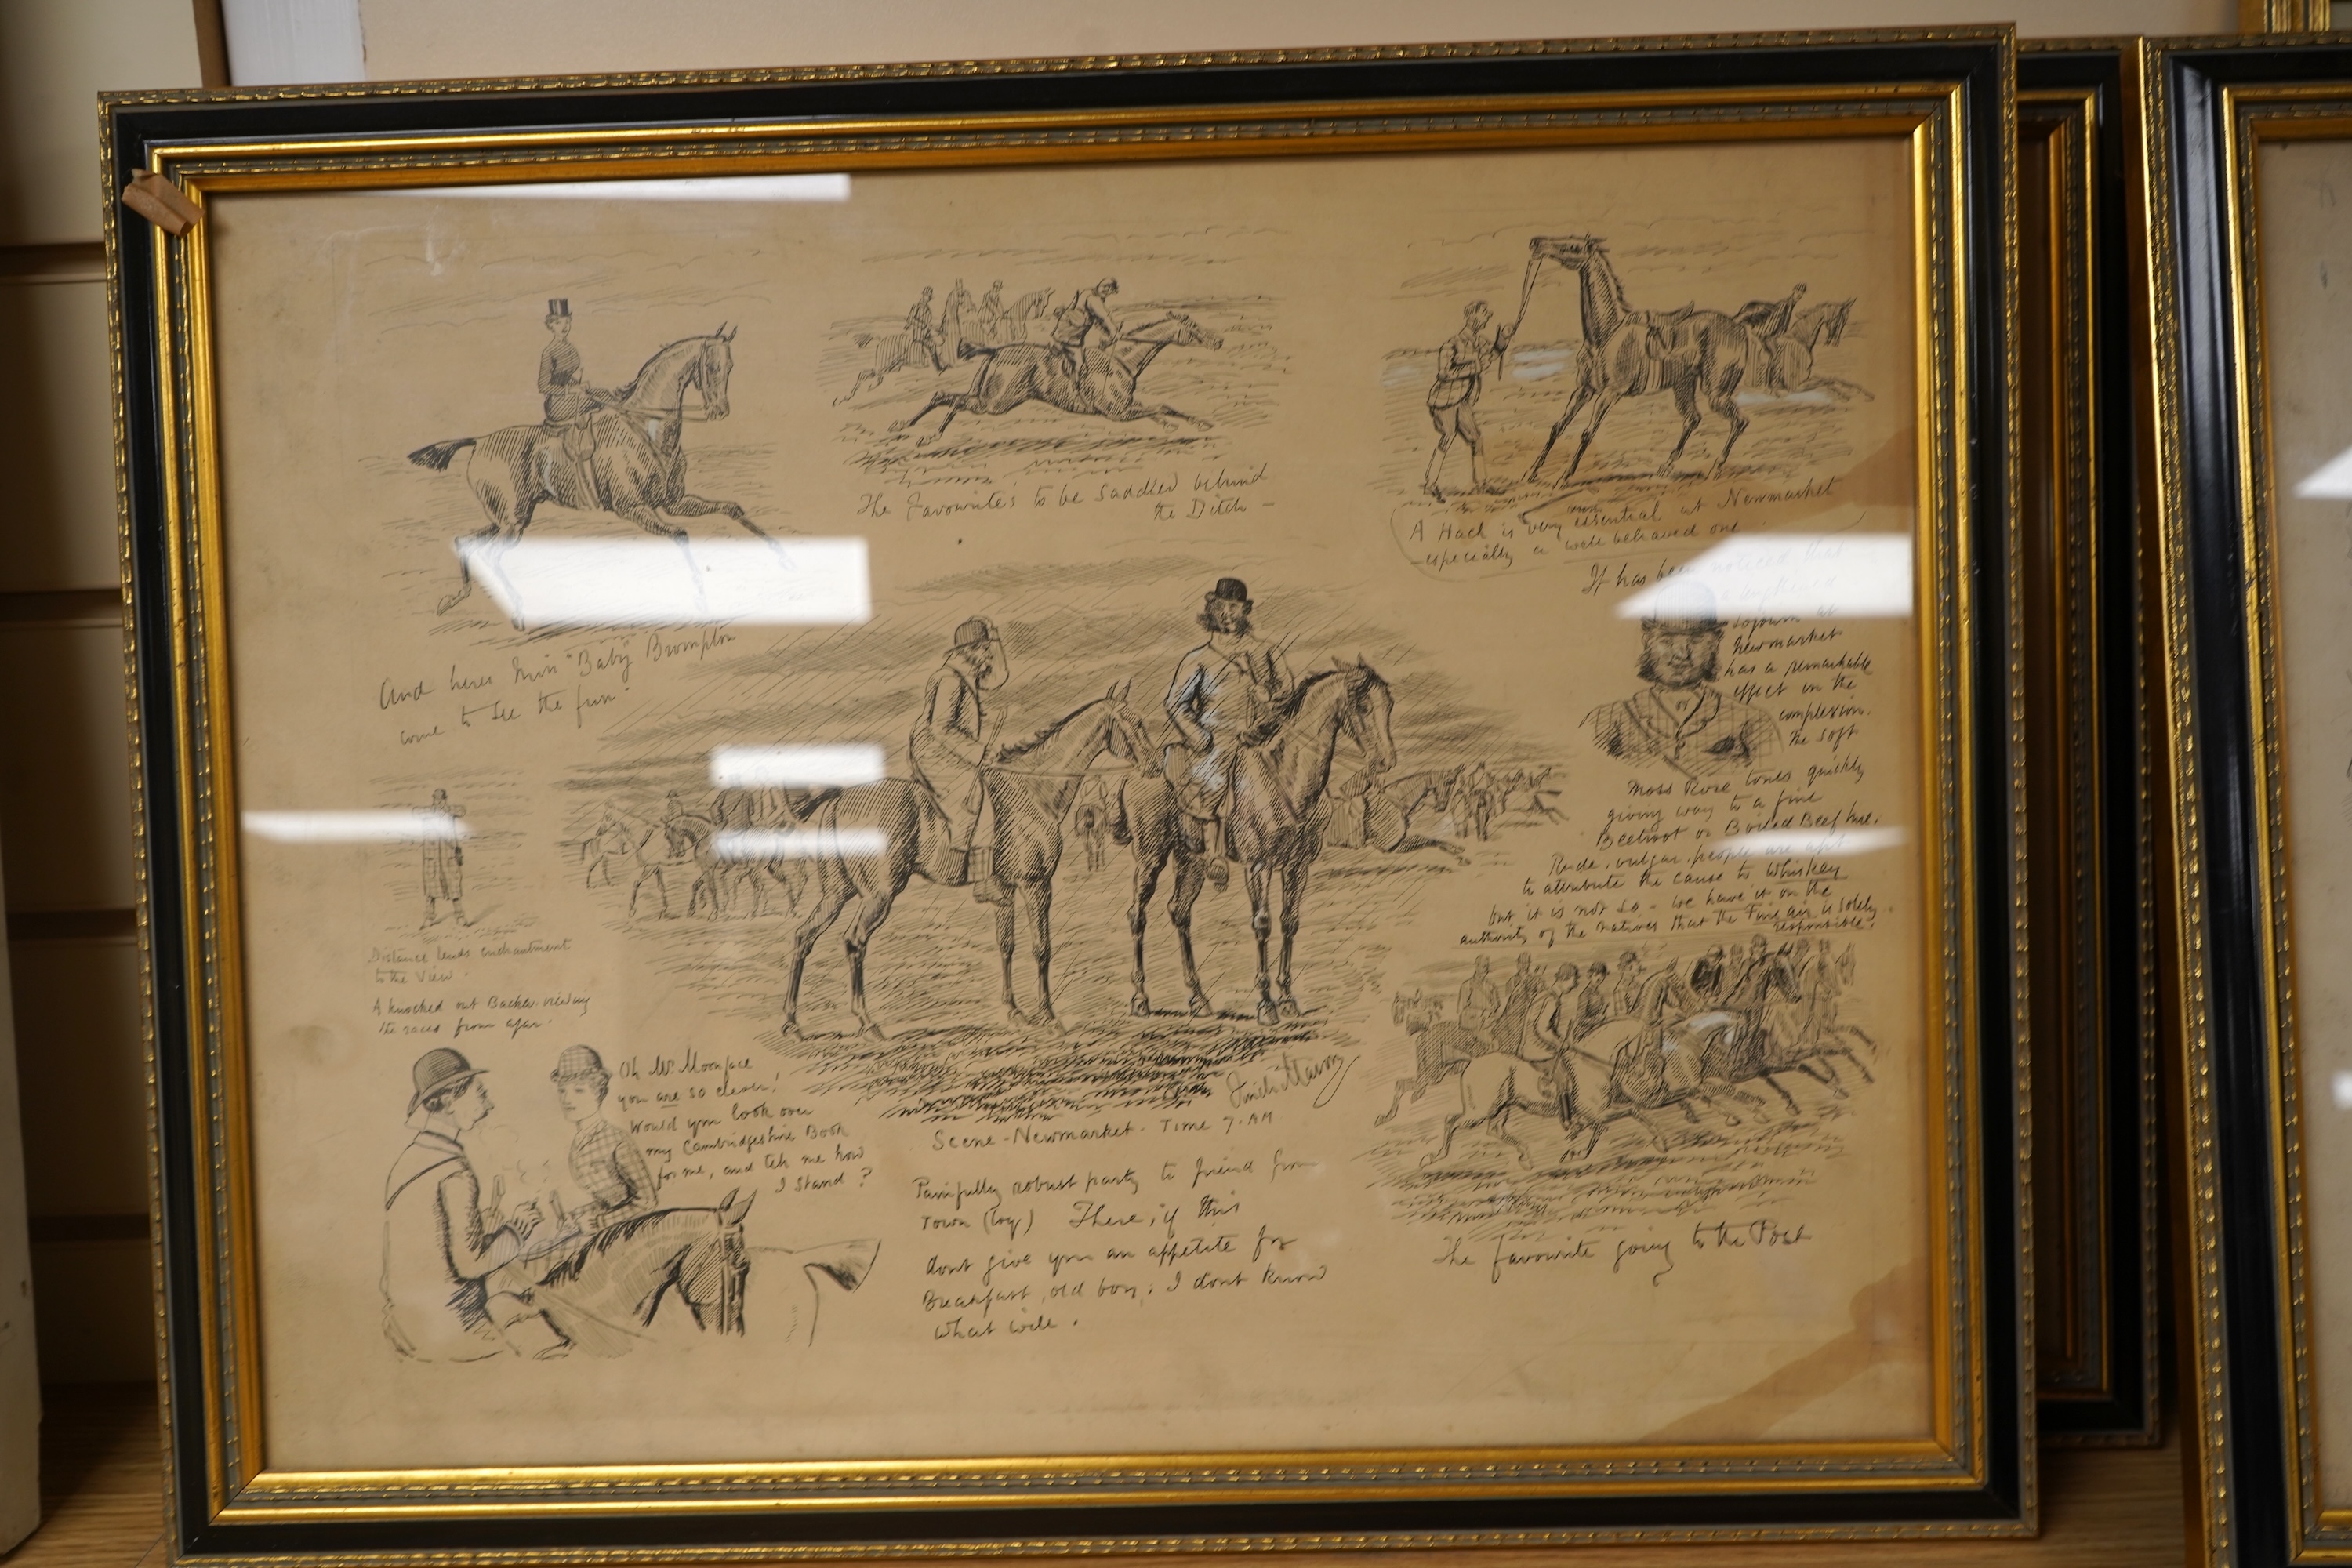 The Favourite's to be Saddled behind
the Ditch -
A Hack is very essential at Newmarket
especially a well behaved one
And heres Miss "Baby" Brompton
come to see the fun.
It has been noticed that
a lengthened
Sojourn at
Newmarket
has a remarkable
effect on the
complexion.
the soft
Moss Rose tones quickly
giving way to a fine
Beetroot or Boiled Beef hue.
Rude, vulgar, people are apt
to attribute the cause to Whiskey
but it is not so - we have it on the
authority of the natives that the Fine air is solely
responsible.
Distance lends enchantment
to the View.
A knocked out Backer viewing
the races from afar.
Oh Mr. Moonface
you are so clever!
Would you look over
my Cambridgeshire Book
for me, and tell me how
I stand?
Scene - Newmarket - Time 7. AM
Painfully robust party to friend from
Town (log) There, if this
dont give you an appetite for
Breakfast, old boy, I dont know
what will.
The favourite going to the Post